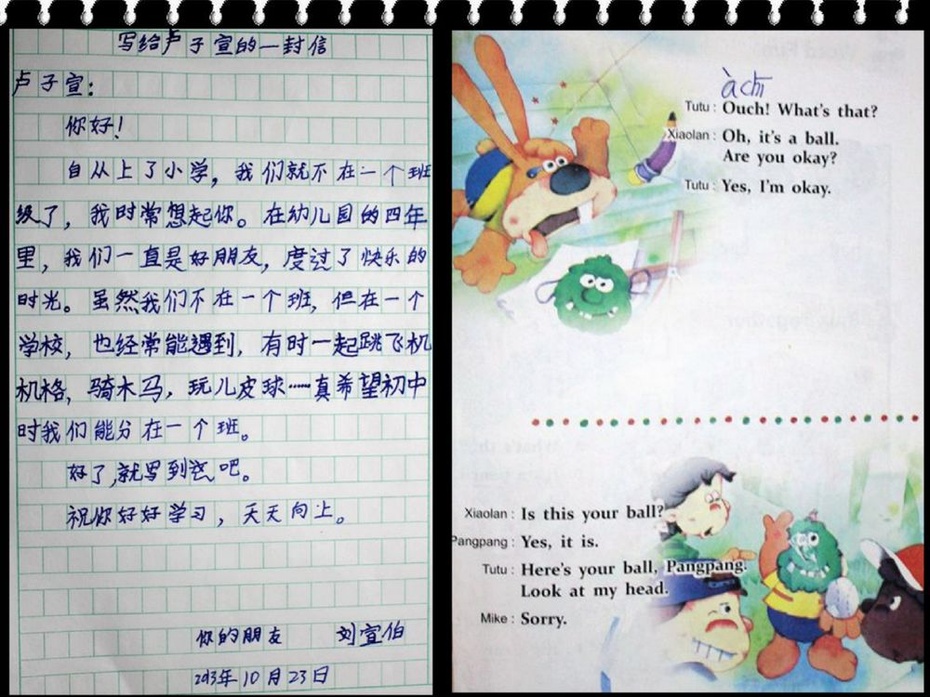 写给卢子宣的一封信
卢子宣：
你好！
自从上了小学，我们就不在一个班
级了，我时常想起你。在幼儿园的四年
里，我们一直是好朋友，度过了快乐的
时光。虽然我们不在一个班，但在一个
学校，也经常能遇到，有时一起跳飞机
机格，骑木马，玩儿皮球……真希望初中
时我们能分在一个班。
好了，就写到这吧。
祝你好好学习，天天向上。
你的朋友 刘宣伯
2013年10月23日
àchī
Tutu : Ouch! What's that?
Xiaolan : Oh, it's a ball.
Are you okay?
Tutu : Yes, I'm okay.
Xiaolan : Is this your ball?
Pangpang : Yes, it is.
Tutu : Here's your ball, Pangpang.
Look at my head.
Mike : Sorry.